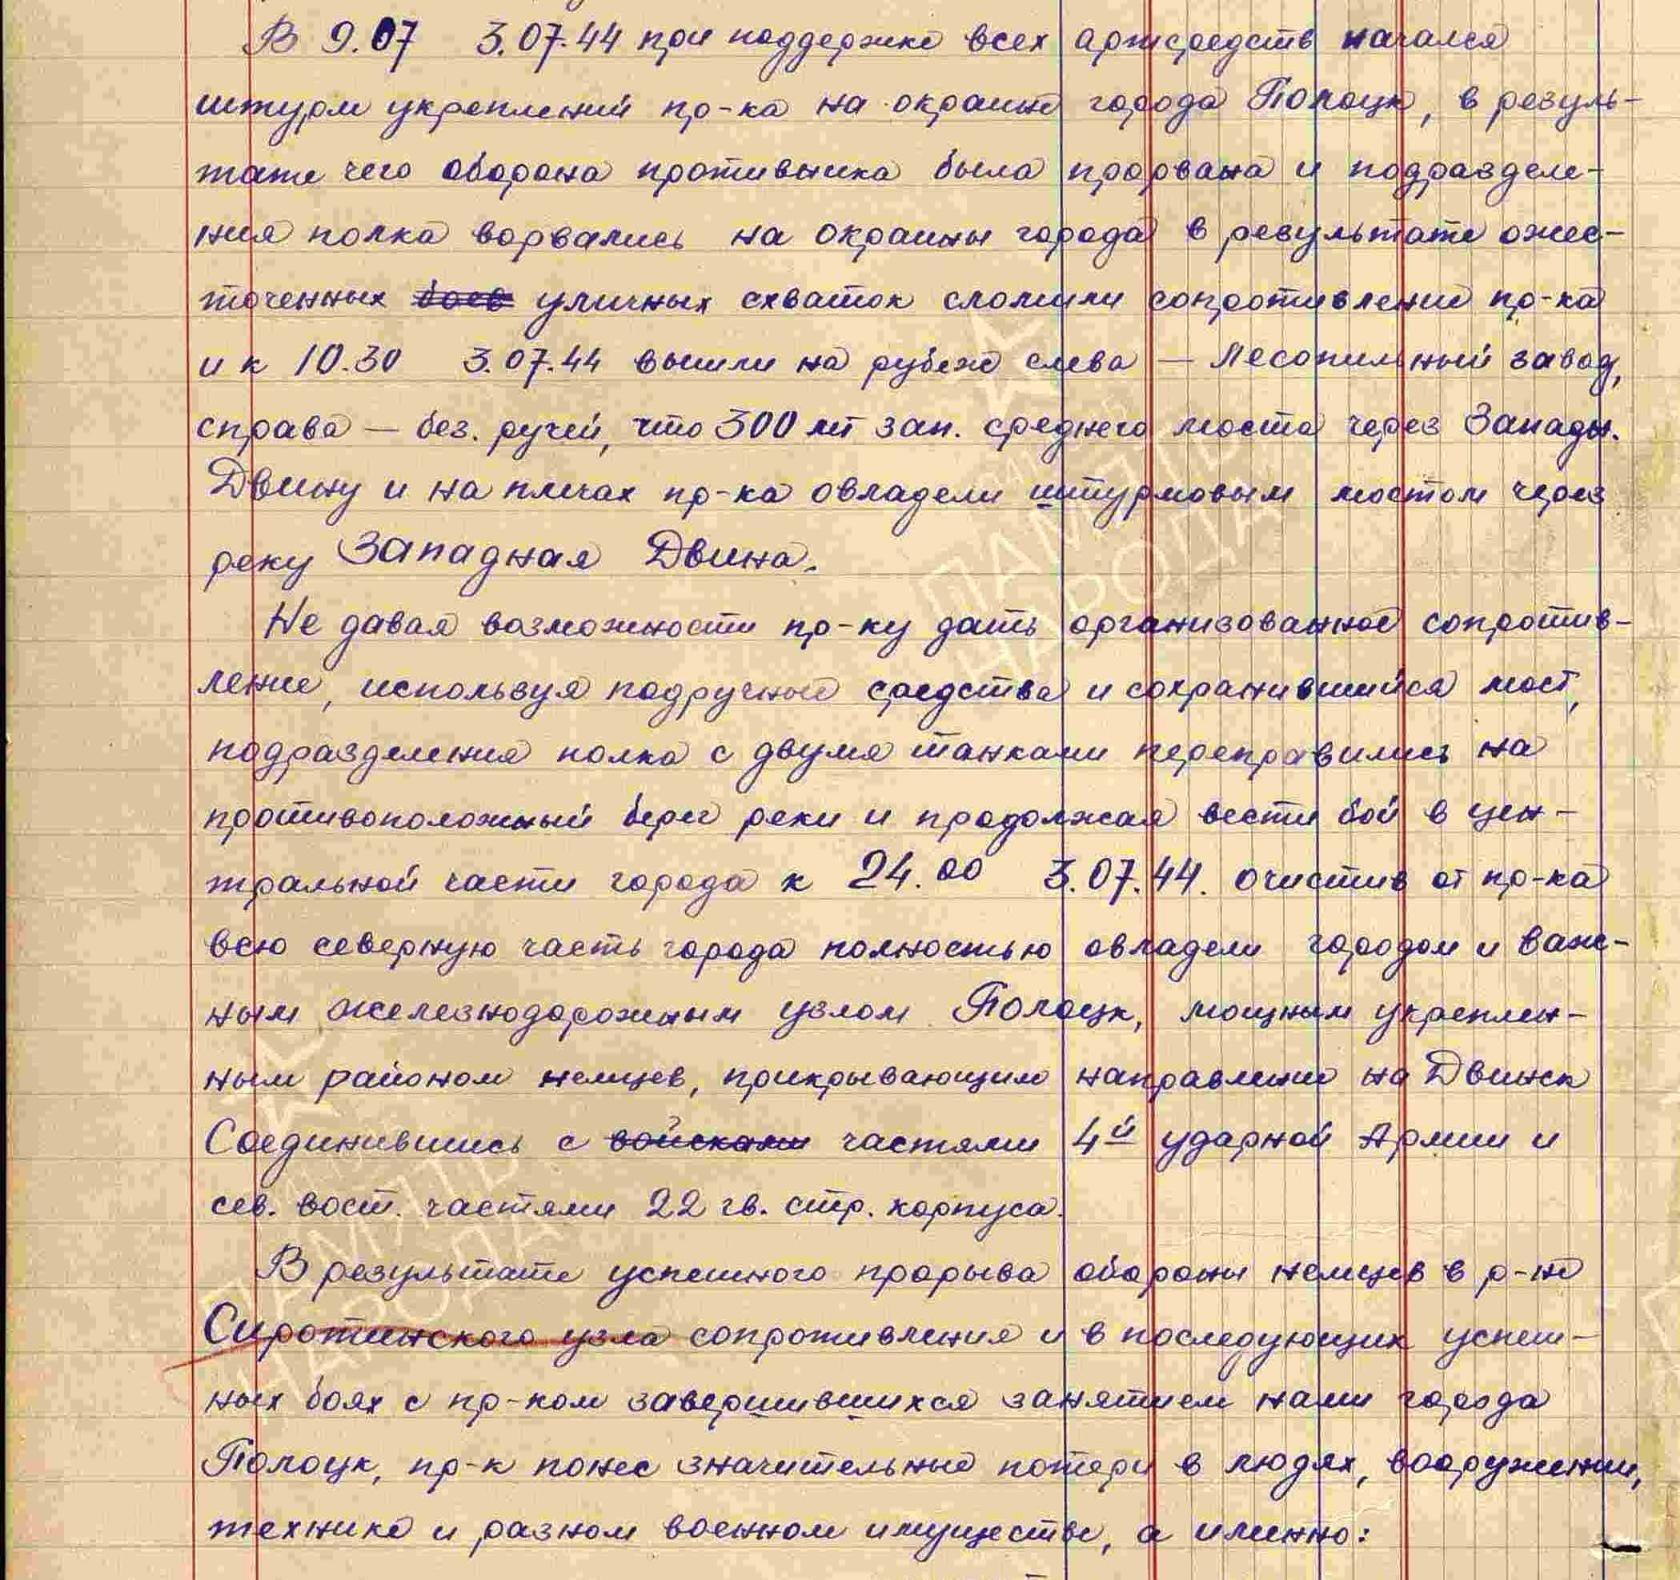 В 9.07 3.07.44 при поддержке всех артсредств начался
штурм укреплений пр-ка на окраине города Полоцк, в резуль-
тате чего оборона противника была прорвана и подразделе-
ния полка ворвались на окраины города в результате ожес-
точенных боев уличных схваток сломили сопротивление пр-ка
и к 10.30 3.07.44 вышли на рубеж слева — Лесопильный завод,
справа — без. ручей, что 300 мт зап. среднего моста через Западн.
Двину и на плечах пр-ка овладели штурмовым мостом через
реку Западная Двина.
Не давая возможности пр-ку дать организованное сопротив-
ление, используя подручные средства и сохранившийся мост,
подразделения полка с двумя танками переправились на
противоположный берег реки и продолжая вести бой в цен-
тральной части города к 24.00 3.07.44. очистив от пр-ка
всю северную часть города полностью овладели городом и важ-
ным железнодорожным узлом Полоцк, мощным укреплен-
ным районом немцев, прикрывающим направление на Двинск
Соединившись с войсками частями 4й ударной Армии и
сев. вост. частями 22 гв. стр. корпуса.
В результате успешного прорыва обороны немцев в р-не
Сиротинского узла сопротивления и в последующих успеш-
ных боях с пр-ком завершившихся занятием нами города
Полоцк, пр-к понес значительные потери в людях, вооружении,
технике и разном военном имуществе, а именно:
ПАМЯТЬ
НАРОДА
ПАМЯТЬ
НАРОДА